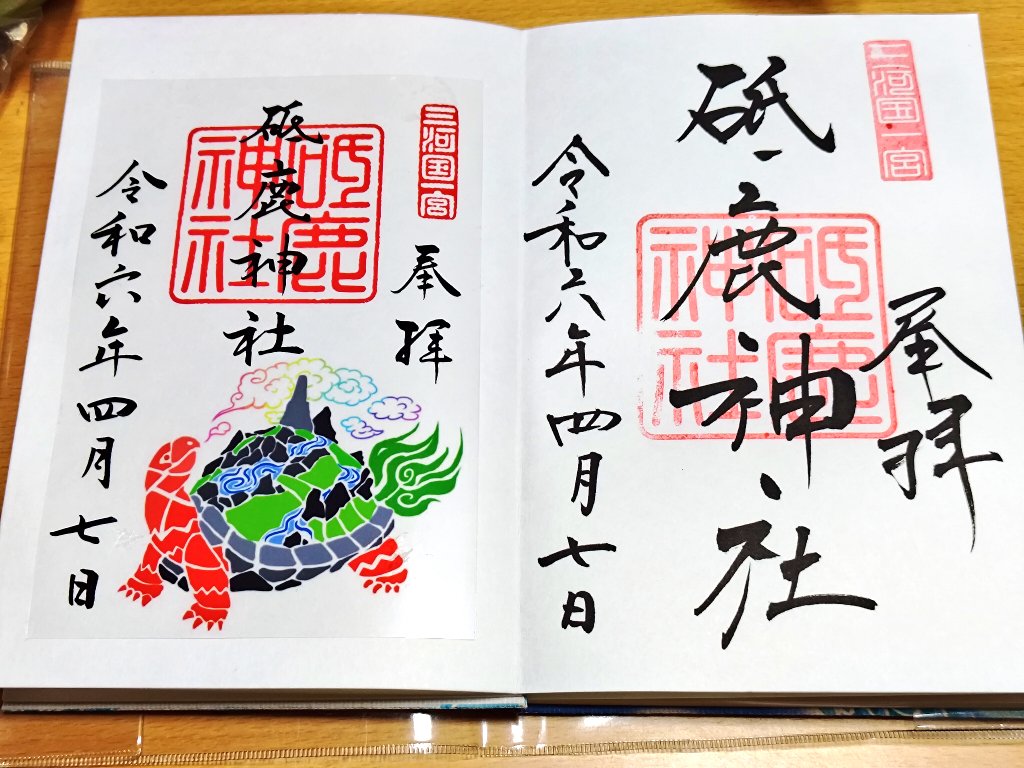 三河国一宮
奉拝
砥鹿神社
砥鹿神社
令和六年四月七日
三河国一宮
奉拝
砥鹿神社
砥鹿神社
令和六年四月七日